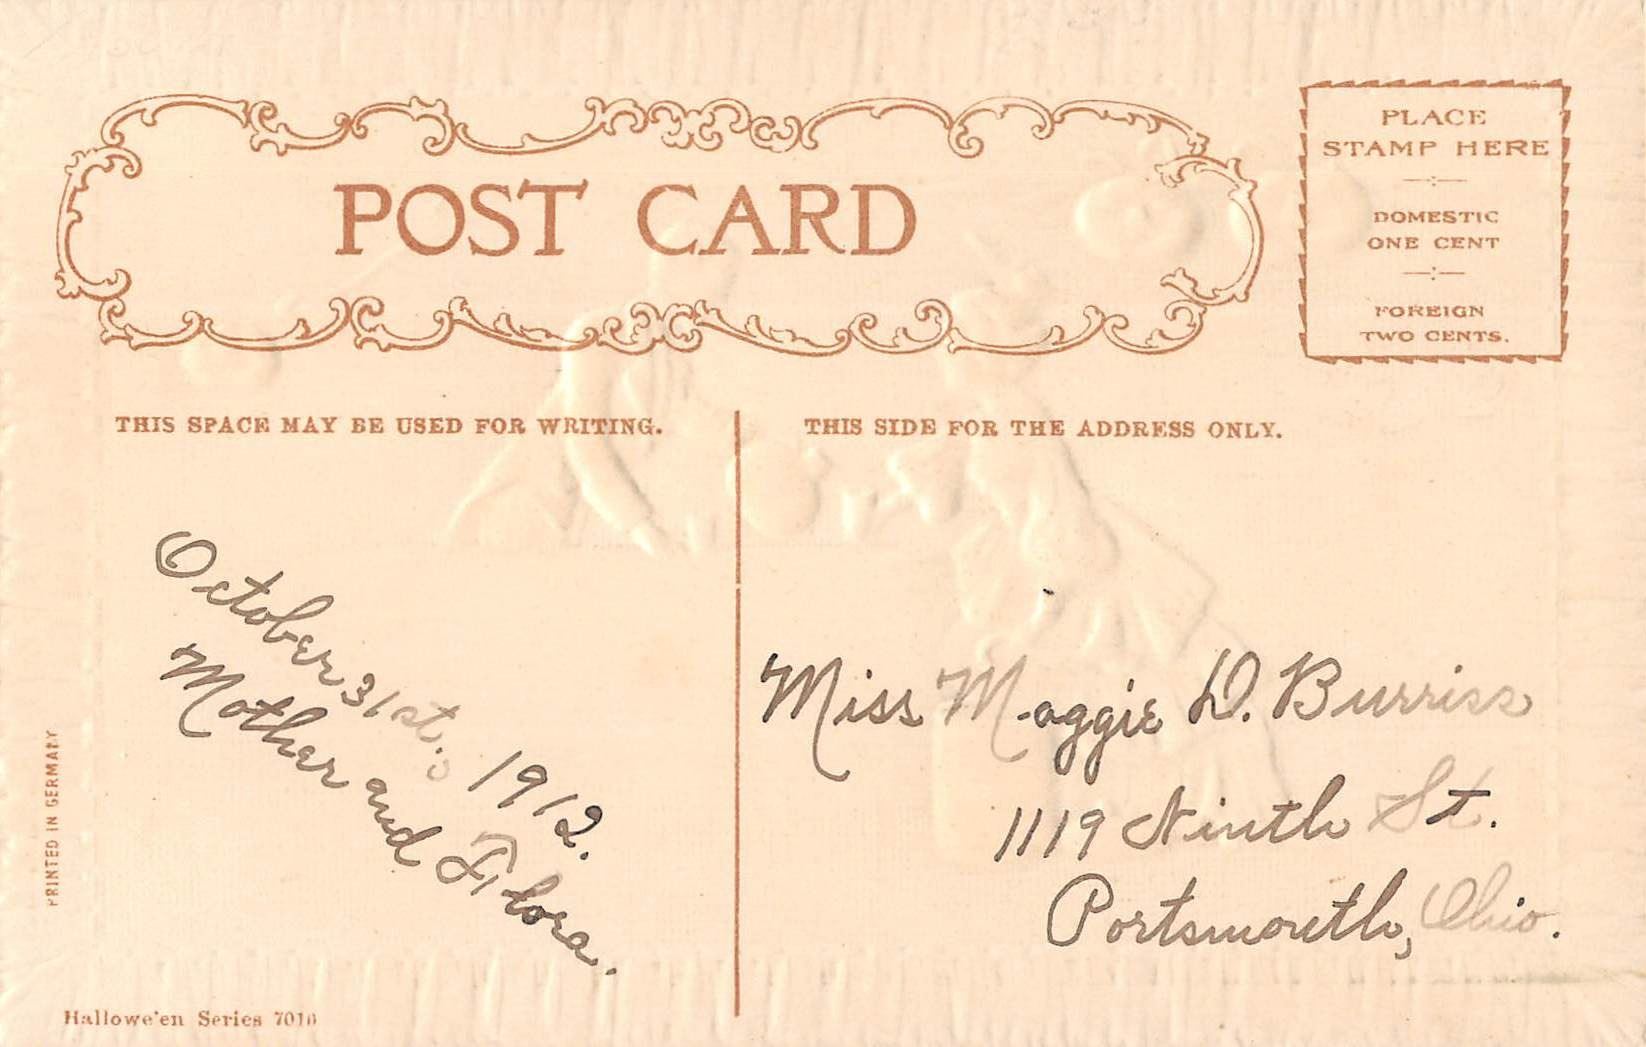 POST CARD
PLACE
STAMP HERE
DOMESTIC
ONE CENT
FOREIGN
TWO CENTS.
THIS SPACE MAY BE USED FOR WRITING.
THIS SIDE FOR THE ADDRESS ONLY.
October 31st., 1912.
Mother and Flora.
Miss Maggie D. Burriss
1119 Ninth St.
Portsmouth, Ohio.
PRINTED IN GERMANY
Hallowe'en Series 7016